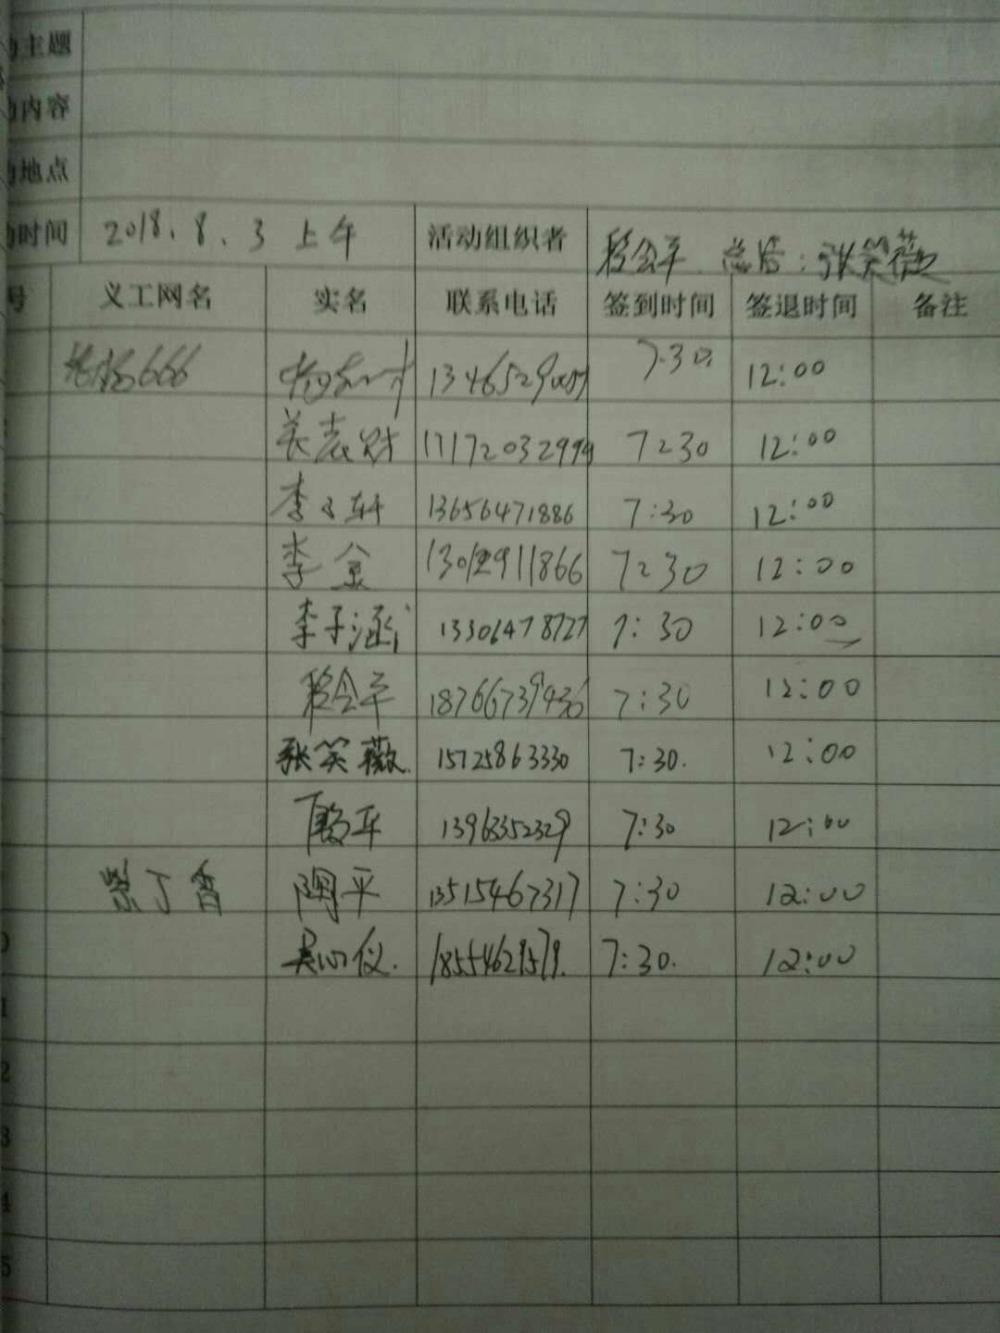 主题
内容
地点
时间 2018.8.3 上午 活动组织者 总结:张笑薇
号 义工网名 实名 联系电话 签到时间 签退时间 备注
666 7:30. 12:00
7:30 12:00
李子轩 13656471886 7:30 12:00
李金 7:30 12:00
李子涵 13306478727 7:30 12:00
程金平 18766739436 7:30 12:00
张笑薇. 15725863330 7:30. 12:00
平 13963352329 7:30 12:00
紫丁香 陶平 13515467317 7:30 12:00
吴心仪. 7:30. 12:00
1
2
3
4
5